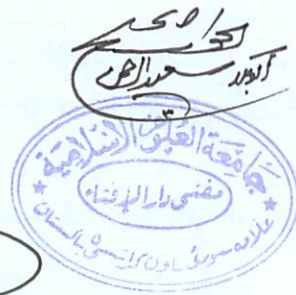 الجواب صحیح
سعید الرحمن
جامعة العلوم الاسلامية
مفتی دار الافتاء
علامہ بنوری ٹاؤن کراتشی ۵ پاکستان